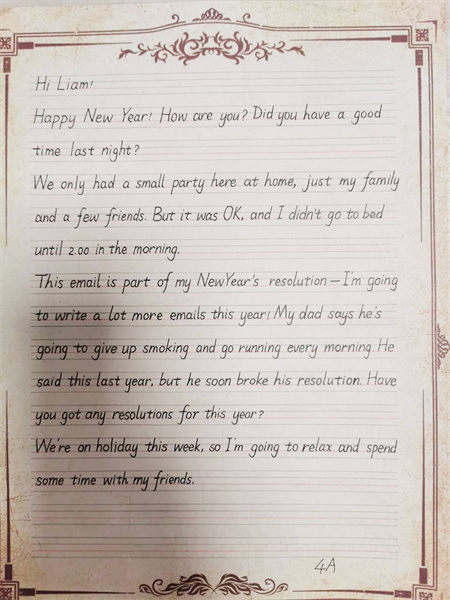 Hi Liam!
Happy New Year! How are you? Did you have a good
time last night?
We only had a small party here at home, just my family
and a few friends. But it was OK, and I didn't go to bed
until 2.00 in the morning.
This email is part of my New Year's resolution – I'm going
to write a lot more emails this year! My dad says he's
going to give up smoking and go running every morning. He
said this last year, but he soon broke his resolution. Have
you got any resolutions for this year?
We're on holiday this week, so I'm going to relax and spend
some time with my friends.
4A